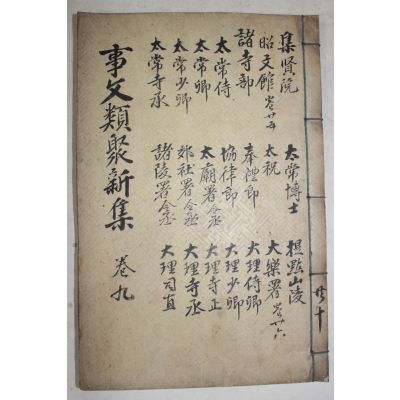 集賢院
昭文館 卷廿五
諸寺部
太常侍
太常卿
太常少卿
太常寺承
太常博士
太祝
奉禮郎
協律郎
太廟署令丞
郊社署令丞
諸陵署令丞
摠點山陵
大樂署 卷廿六
大理侍卿
大理少卿
大理寺正
大理寺丞
大理司直
事文類聚新集 卷九
共十